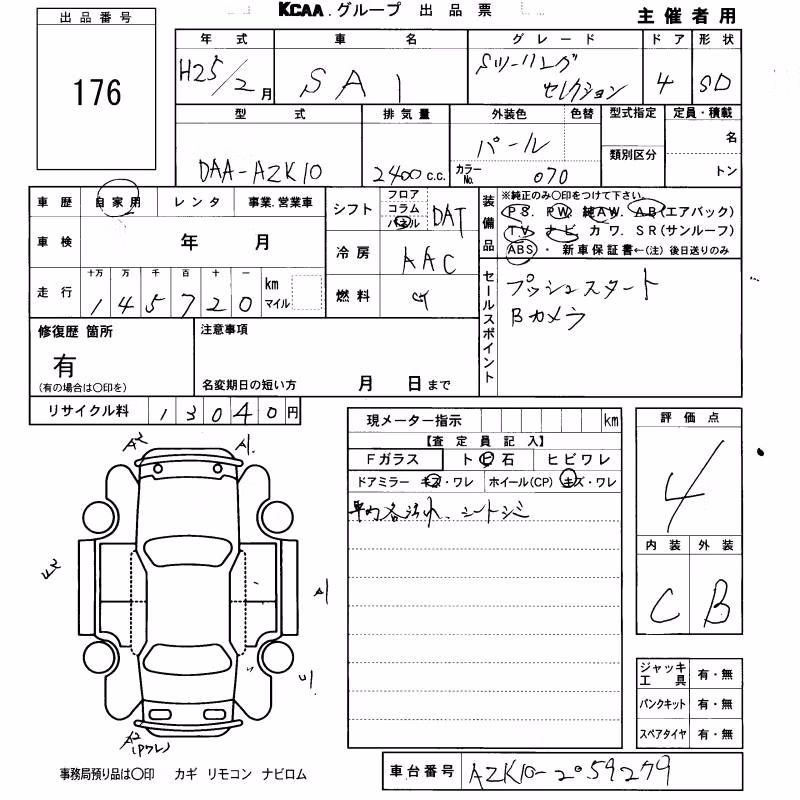 KCAA.グループ 出品票 主催者用
出品番号
176
年式 車名 グレード ドア 形状
H25/2月 SAI Sツーリングセレクション 4 SD
型式 排気量 外装色 色替 型式指定 定員・積載
DAA-AZK10 2400 c.c. パール カラーNo. 070 類別区分 名 トン
車歴 自家用 レンタ 事業.営業車
車検 年 月
走行 十万 万 千 百 十 一 km マイル
1 4 5 7 2 0
シフト フロア コラム パネル DAT
冷房 AAC
燃料 ガ
装備品
※純正のみ〇印をつけて下さい
PS. PW. 純AW. AB(エアバック)
TV. ナビ. カワ. SR(サンルーフ)
ABS ・ 新車保証書←(注) 後日送りのみ
セールスポイント
プッシュスタート
Bカメラ
修復歴 箇所
有
(有の場合は〇印を)
注意事項
名変期日の短い方 月 日まで
リサイクル料 1 3 0 4 0 円
現メーター指示 km
【査定員記入】
Fガラス ト ビ 石 ヒビワレ
ドアミラー キズ・ワレ ホイール(CP) キズ・ワレ
シートシミ
評価点
4
内装 外装
C B
A2 A1
A2
A1
U1
A2(Pワレ)
ジャッキ工具 有・無
パンクキット 有・無
スペアタイヤ 有・無
事務局預り品は〇印 カギ リモコン ナビロム
車台番号 AZK10-2059279